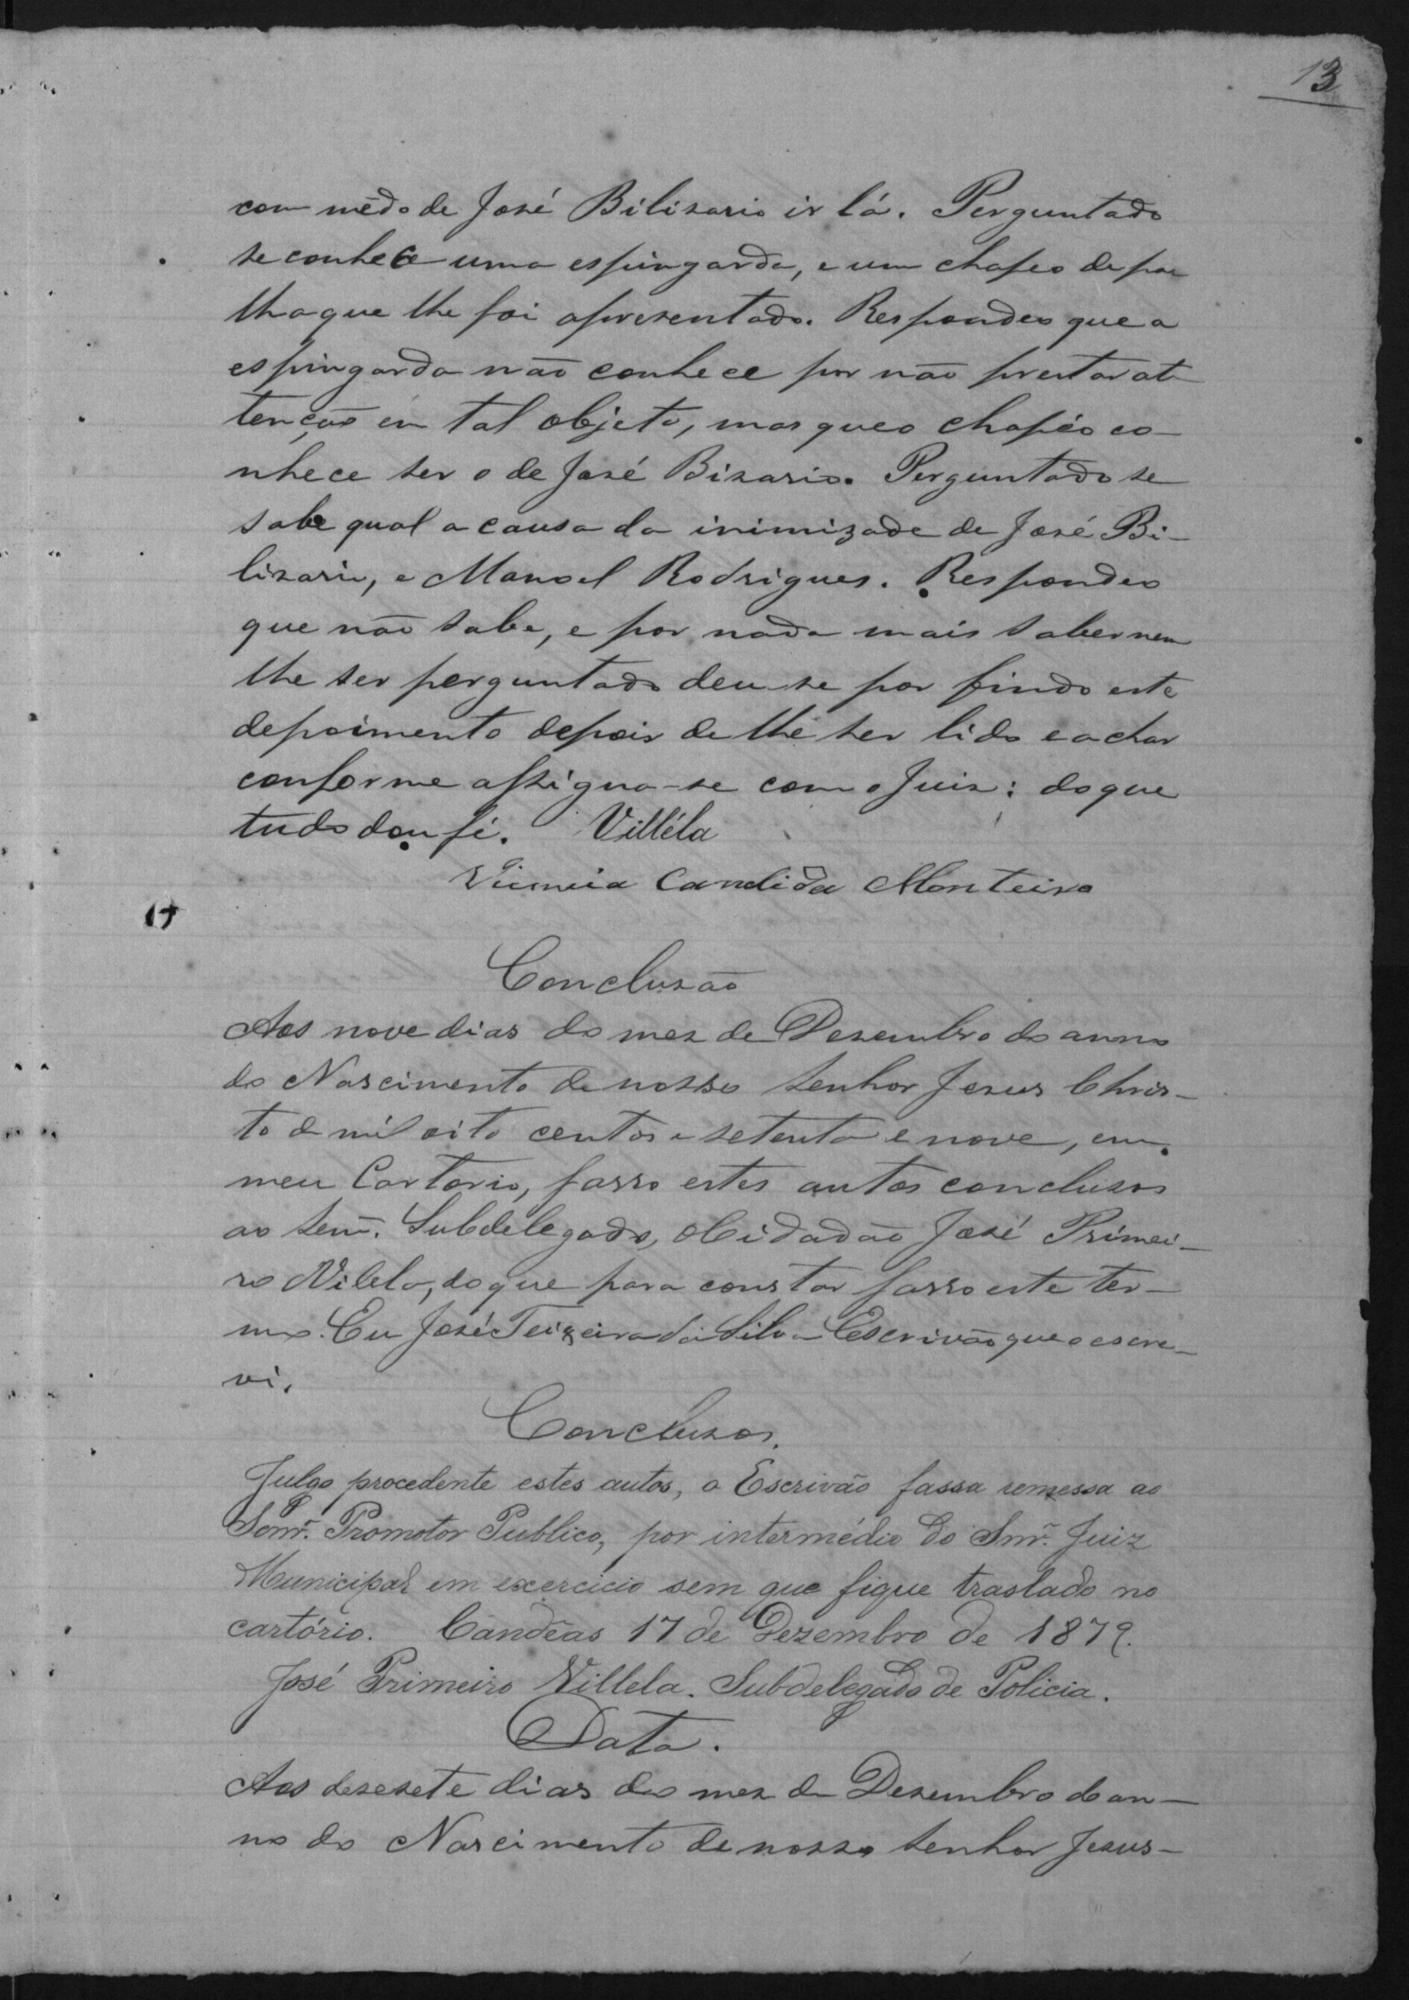 13
com mêdo de José Bilisario ir lá. Perguntado
se conhece uma espingarda, e um chapeo de pa
lha que lhe foi apresentado. Respondeo que a
espingarda não conhece por não prestar at
tenção em tal objeto, mas que o chapéo co-
nhece ser o de José Bisario. Perguntado se
sabe qual a causa da inimizade de José Bi-
lisario, e Manoel Rodrigues. Respondeo
que não sabe, e por nada mais saber nem
lhe ser perguntado deu-se por findo este
depoimento depois de lhe ser lido e achar
conforme assigna-se com o Juiz: do que
tudo dou fé. Villéla
Candida Monteiro
Conclusão
Aos nove dias do mez de Desembro do anno
do Nascimento de nosso Senhor Jesus Chris-
to de mil oito centos e setenta e nove, em
meu Cartorio, fasso estes autos conclusos
ao Senr. Subdelegado, o Cidadão José Primei-
ro Vilela, do que para constar fasso este ter-
mo. Eu José Teixeira da Silva Escrivão que o escre-
vi.
Conclusos.
Julgo procedente estes autos, o Escrivão fassa remessa ao
Senr. Promotor Publico, por intermédio do Snr. Juiz
Municipal em exercicio sem que fique traslado no
cartório. Candêas 17 de Dezembro de 1879.
José Primeiro Villela. Subdelegado de Policia.
Data.
Aos desesete dias do mez de Desembro do an-
no do Nascimento de nosso Senhor Jesus-